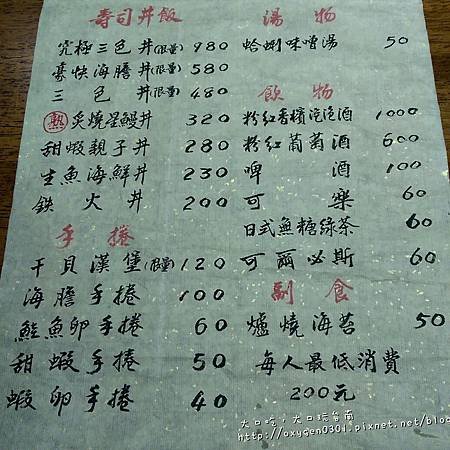 壽司丼飯
究極三色丼(限量) 980
豪快海膽丼(限量) 580
三色丼(限量) 480
熱 炙燒星鰻丼 320
甜蝦親子丼 280
生魚海鮮丼 230
鉄火丼 200
手捲
干貝漢堡(限量) 120
海膽手捲 100
鮭魚卵手捲 60
甜蝦手捲 50
蝦卵手捲 40
湯物
蛤蜊味噌湯 50
飲物
粉紅香檳汽泡酒 1000
粉紅葡萄酒 600
啤酒 100
可樂 60
日式無糖綠茶 60
可爾必斯 60
副食
爐燒海苔 50
每人最低消費
200元
大口吃,大口玩台南
http://oxygen0301.pixnet.net/blog